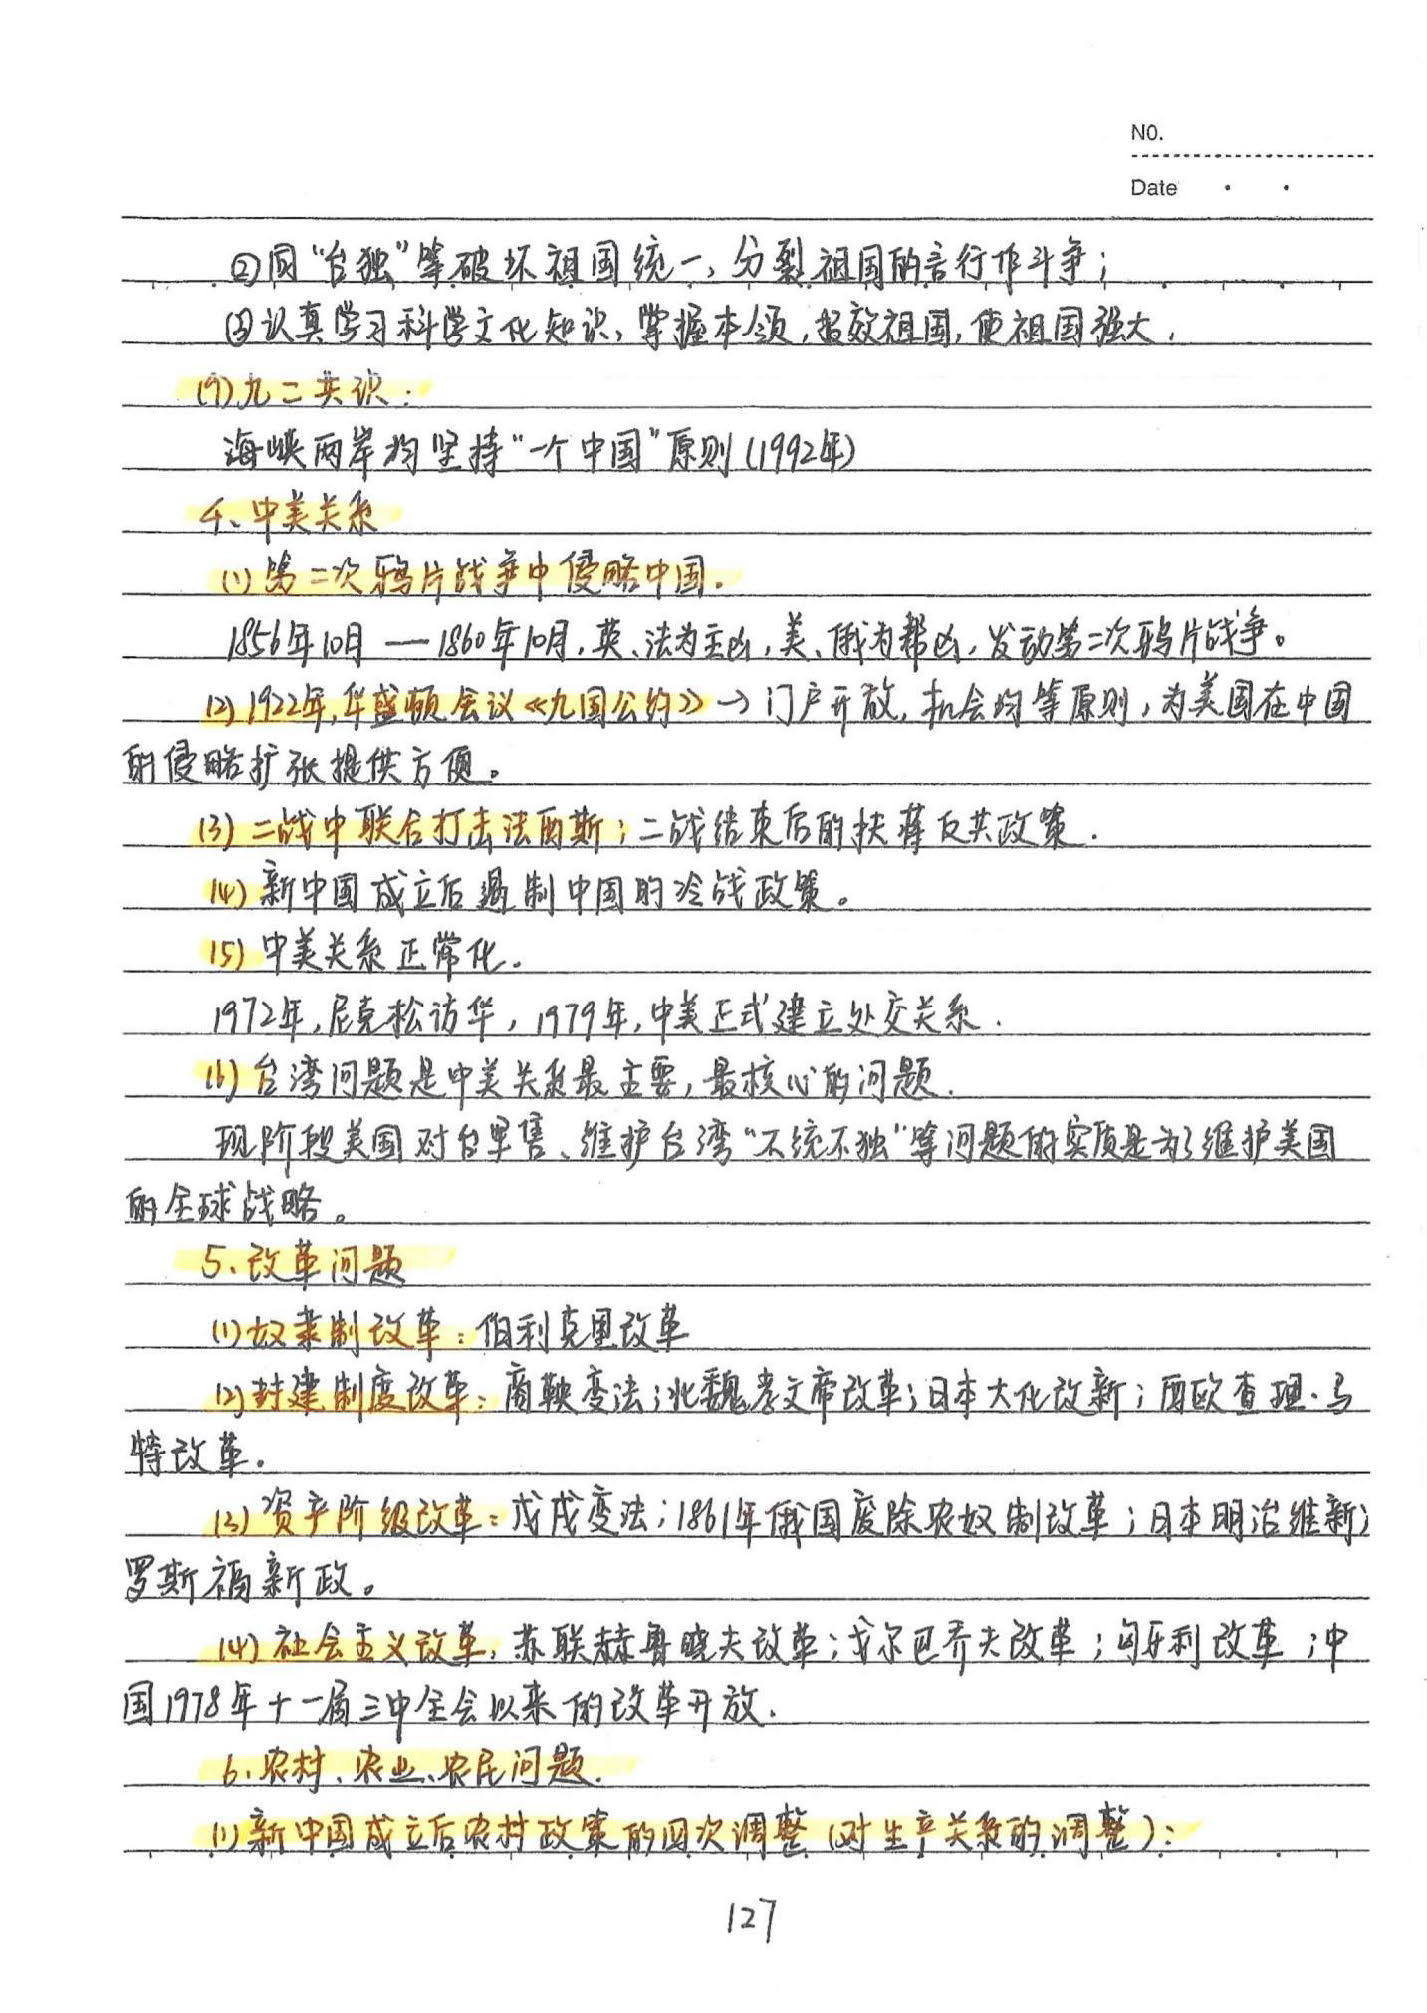 NO.
Date
②同“台独”等破坏祖国统一、分裂祖国的言行作斗争;
③认真学习科学文化知识、掌握本领,报效祖国,使祖国强大.
(9)九二共识:
海峡两岸均坚持“一个中国”原则(1992年)
4、中美关系
(1)第二次鸦片战争中侵略中国.
1856年10月——1860年10月,英、法为主凶,美、俄为帮凶,发动第二次鸦片战争。
(2)1922年,华盛顿会议《九国公约》→门户开放,机会均等原则,为美国在中国
的侵略扩张提供方便。
(3)二战中联合打击法西斯;二战结束后的扶蒋反共政策.
(4)新中国成立后遏制中国的冷战政策。
(5)中美关系正常化.
1972年,尼克松访华,1979年,中美正式建立外交关系.
(6)台湾问题是中美关系最主要,最核心的问题.
现阶段美国对台军售、维护台湾“不统不独”等问题的实质是为了维护美国
的全球战略。
5、改革问题
(1)奴隶制改革:伯利克里改革
(2)封建制度改革:商鞅变法;北魏孝文帝改革;日本大化改新;西欧查理·马
特改革.
(3)资产阶级改革:戊戌变法;1861年俄国废除农奴制改革;日本明治维新;
罗斯福新政。
(4)社会主义改革:苏联赫鲁晓夫改革;戈尔巴乔夫改革;匈牙利改革;中
国1978年十一届三中全会以来的改革开放.
6、农村、农业、农民问题.
(1)新中国成立后农村政策的四次调整(对生产关系的调整):
127